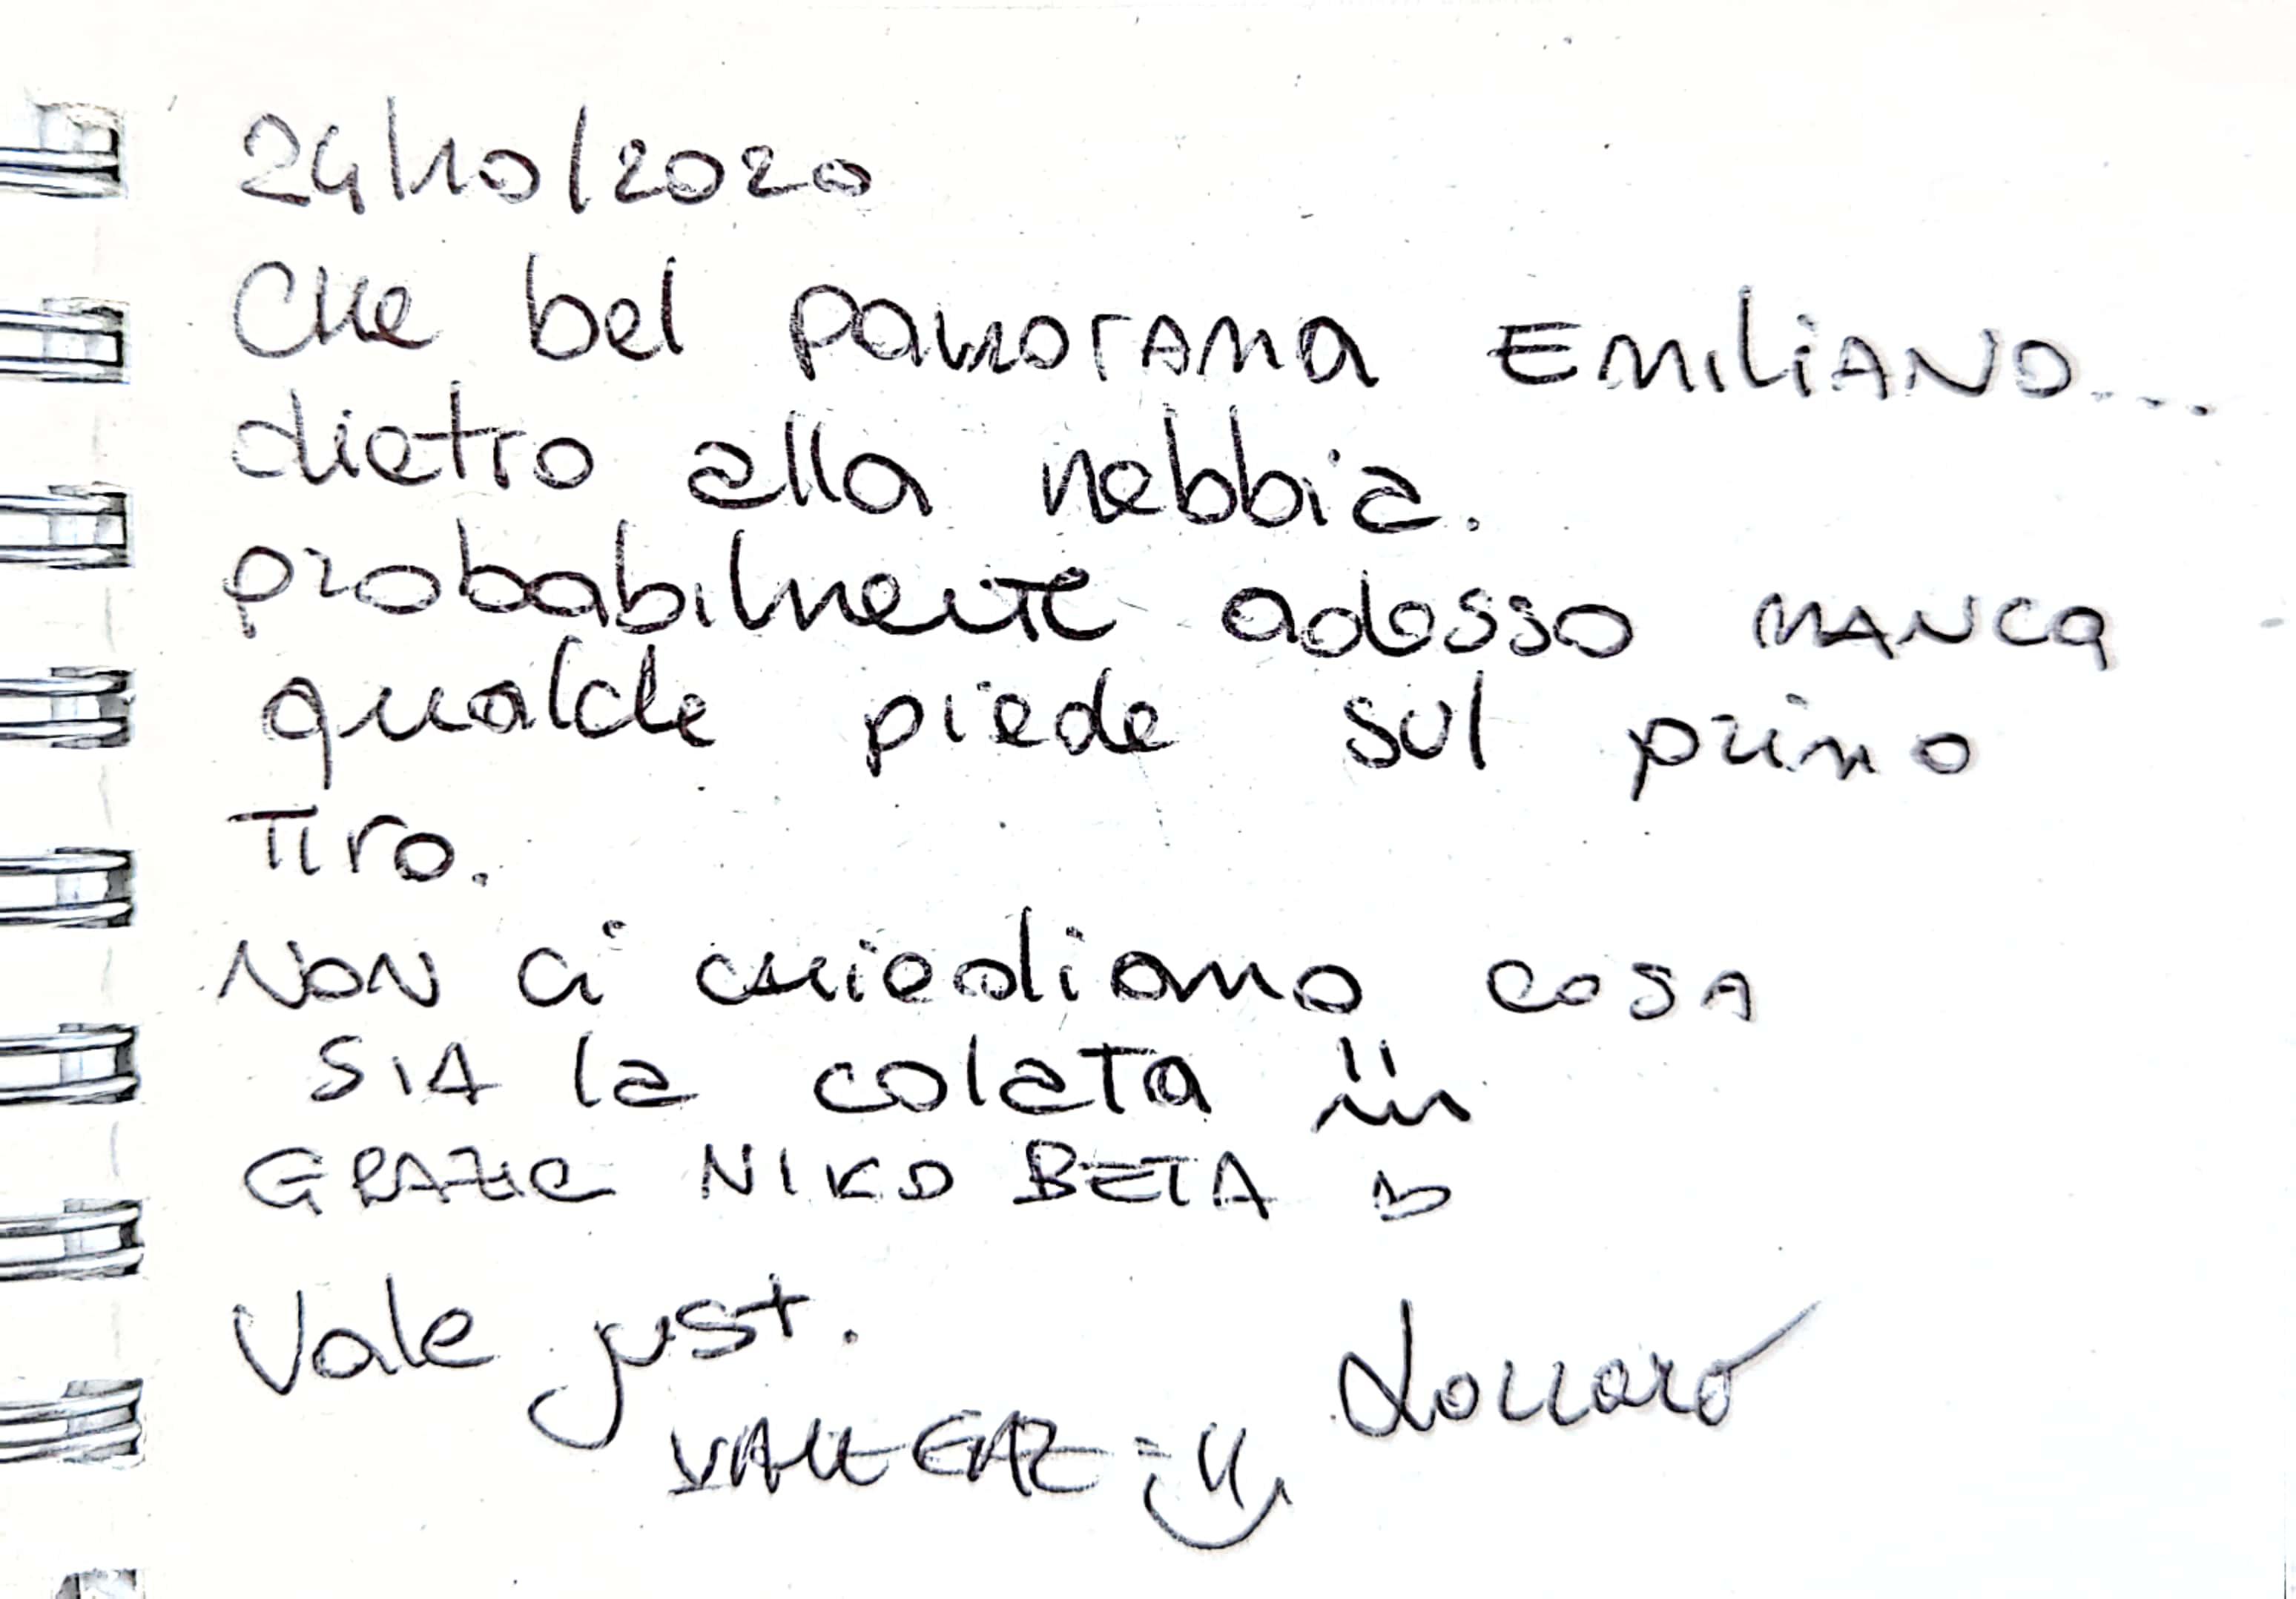 24/10/2020
Che bel panorama EMiliANO...
dietro alla nebbia.
probabilmente adesso MANCa
qualche piede sul primo
Tiro.
NON ci chiediamo cosA
SIA la colaTa
GRAZIe NIKO BETA
Vale just.
VALE